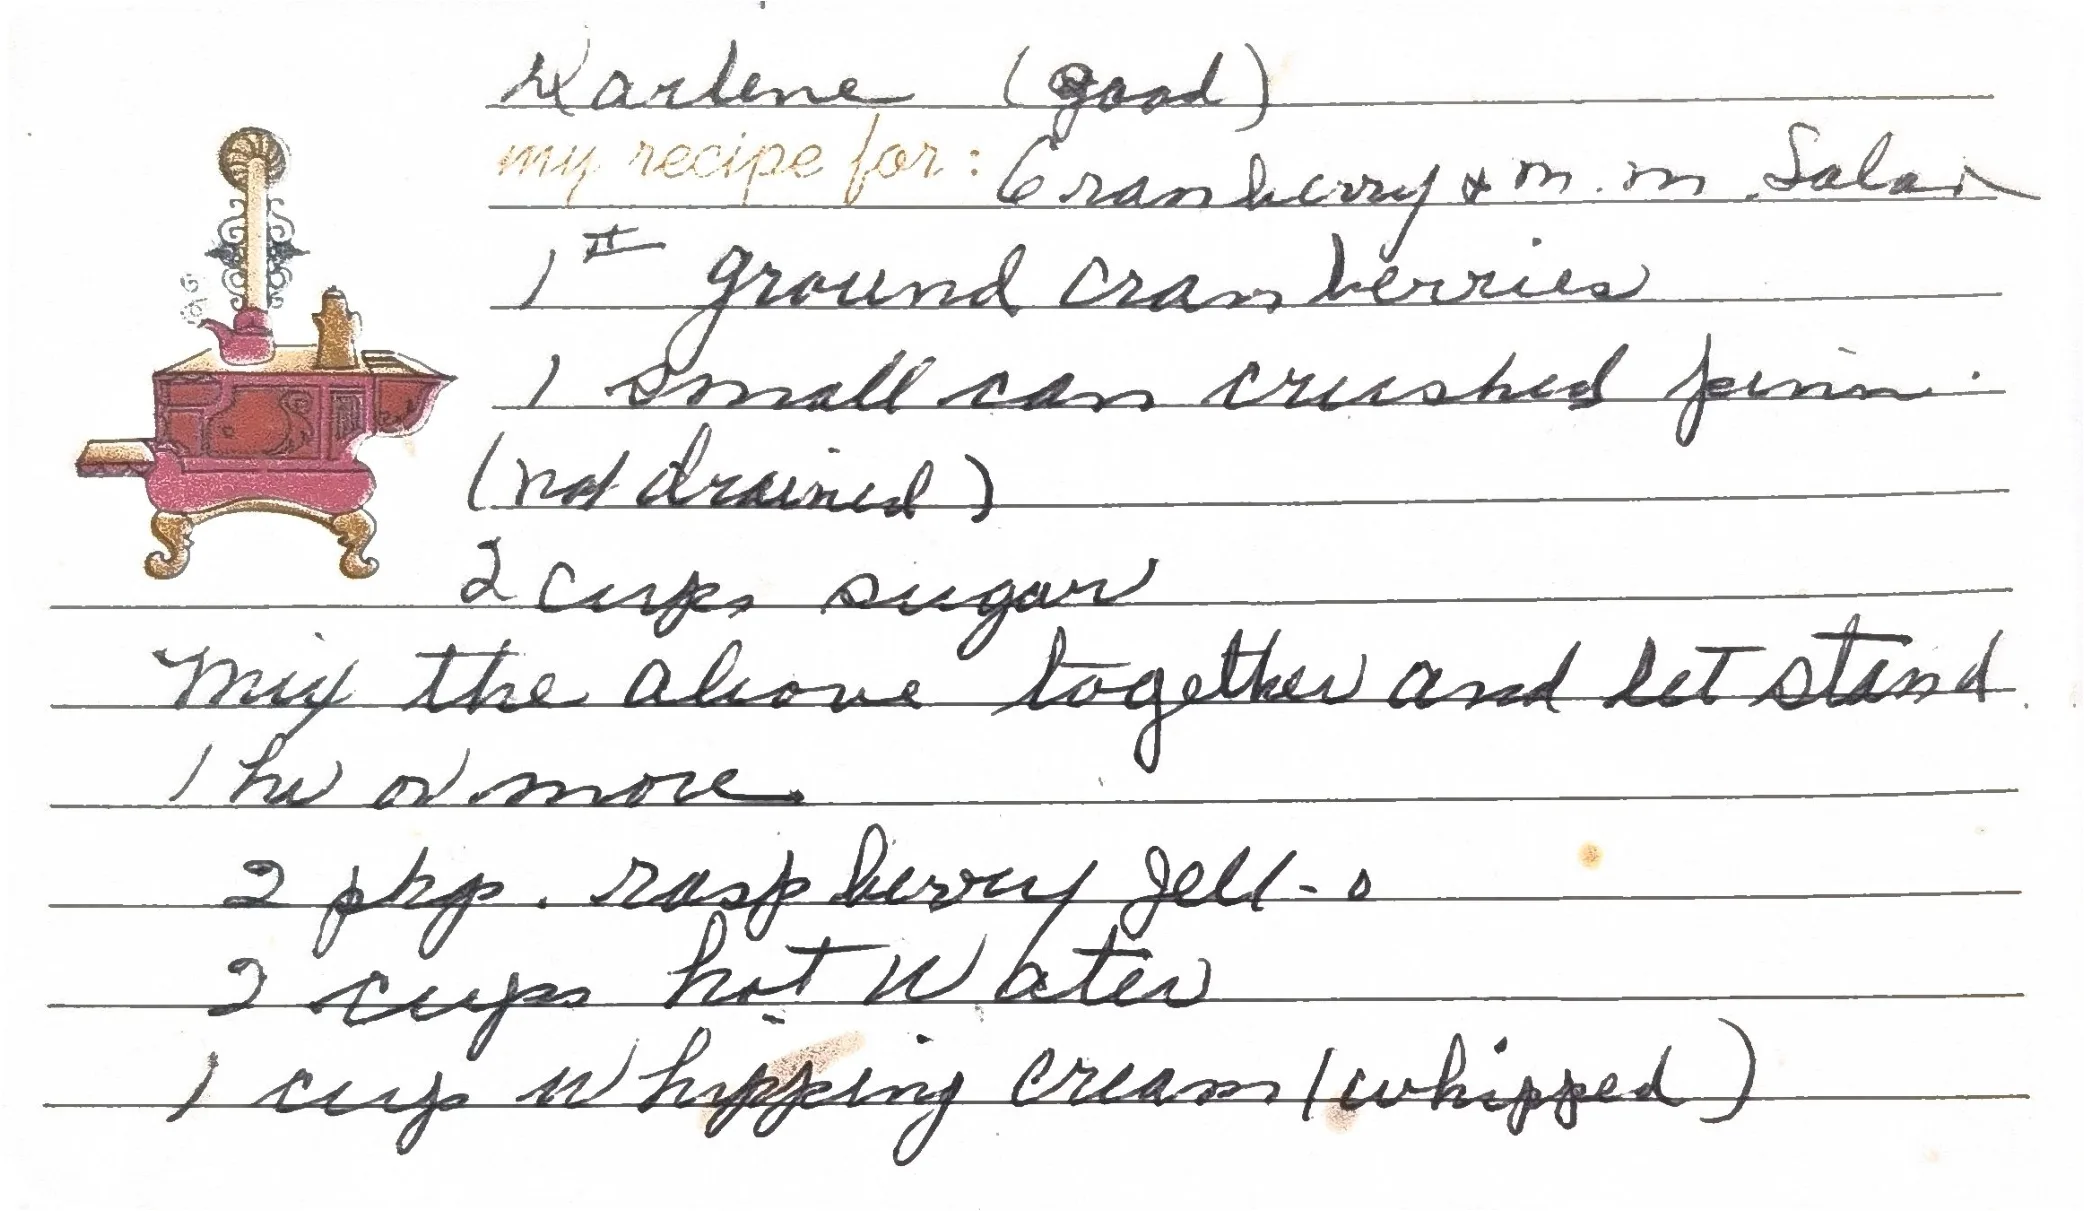 Darlene (good)
my recipe for: Cranberry & m.m. Salad
1# ground cranberries
1 small can crushed pinn.
(not drained)
2 cups sugar
Mix the above together and let stand
1 hr or more.
2 pkg. raspberry Jell-o
2 cups hot water
1 cup whipping cream (whipped)